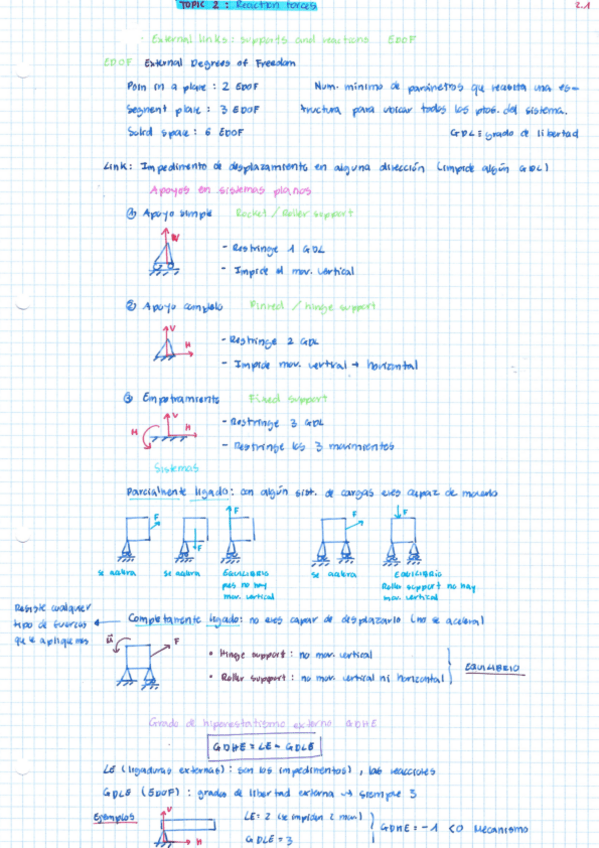 TOPIC 2 : Reaction forces
2.1
External links : supports and reactions EDOF
EDOF External Degrees of Freedom
Poin in a plane : 2 EDOF
Segment plane : 3 EDOF
Solid space : 6 EDOF
Num. mínimo de parámetros que necesita una es-
tructura para ubicar todos los ptos. del sistema.
GDL ≡ grado de libertad
Link : Impedimento de desplazamiento en alguna dirección (impide algún GDL)
Apoyos en sistemas planos
① Apoyo simple Rocket / Roller support
V
- Restringe 1 GDL
- Impide el mov. vertical
② Apoyo completo Pinned / hinge support
V
H
- Restringe 2 GDL
- Impide mov. vertical + horizontal
③ Empotramiento Fixed support
M
V
H
- Restringe 3 GDL
- Restringe los 3 movimientos
Sistemas
Parcialmente ligado : con algún sist. de cargas eres capaz de moverlo
F
F
F
F
F
se acelera
se acelera
EQUILIBRIO
pues no hay
mov. vertical
se acelera
EQUILIBRIO
Roller support no hay
mov. vertical
Resiste cualquier
tipo de fuerzas
que le apliquemos
Completamente ligado : no eres capaz de desplazarlo (no se acelera)
M
F
• Hinge support : no mov. vertical
• Roller support : no mov. vertical ni horizontal
EQUILIBRIO
Grado de hiperestatismo externo GDHE
GDHE = LE - GDLE
LE (ligaduras externas) : son los impedimentos, las reacciones
GDLE (EDOF) : grados de libertad externa → siempre 3
Ejemplos
V
H
LE = 2 (se impiden 2 mov.)
GDLE = 3
GDHE = -1 < 0 Mecanismo